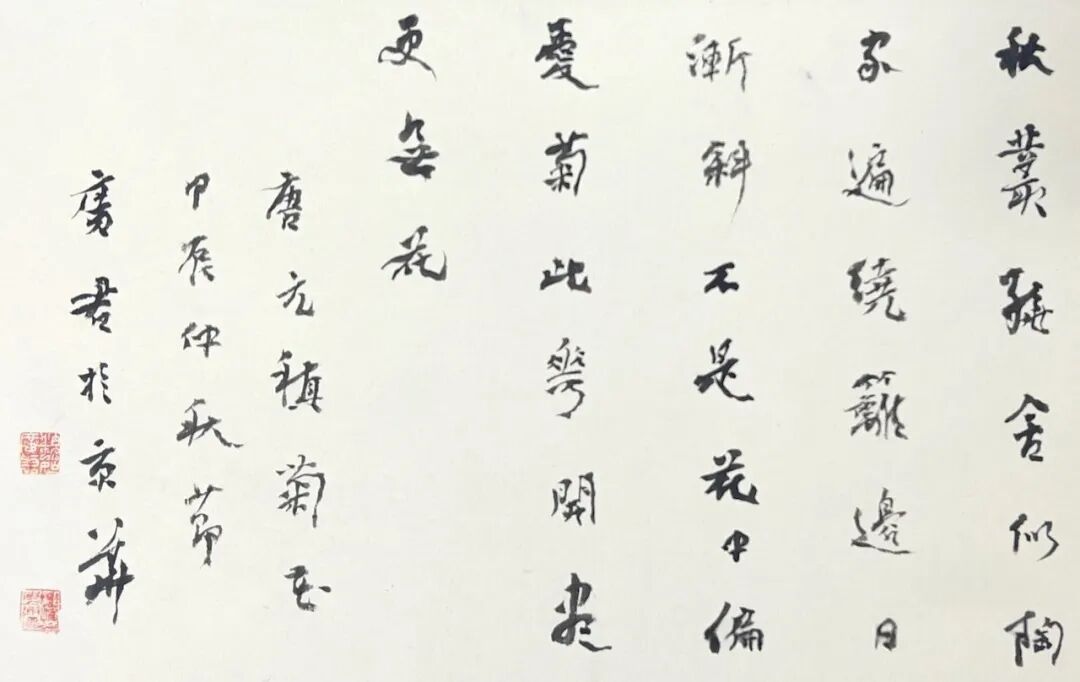 秋叢繞舍似陶
家遍繞籬邊日
漸斜不是花中偏
愛菊此華開盡
更無花
唐元稹菊花
甲辰仲秋節
廣君於京華